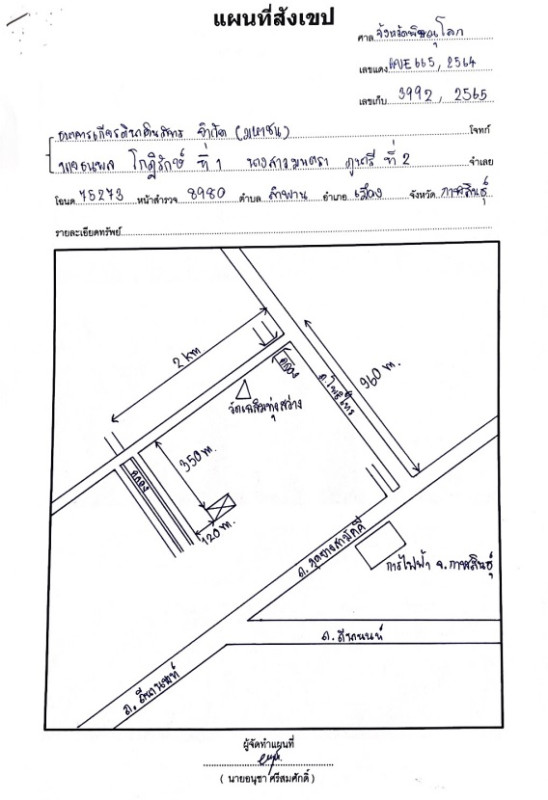 แผนที่สังเขป
ศาล จังหวัดพิษณุโลก
เลขแดง ผบE 665, 2564
เลขเก็บ 3992, 2565
ธนาคารเกียรตินาคินภัทร จำกัด (มหาชน) โจทก์
ที่ 1 ที่ 2 จำเลย
โฉนด 75273 หน้าสำรวจ 8980 ตำบล ลำพาน อำเภอ เมือง จังหวัด กาฬสินธุ์
รายละเอียดทรัพย์
2 km
คลอง
960 m.
ถ.โพธิ์ไทร
วัดเฉลิมทุ่งสว่าง
350 m.
คลอง
120 m.
ถ. สุดยางสามัคคี
การไฟฟ้า จ.กาฬสินธุ์
ถ. ถีนานนท์
ถ. ถีนานนท์
ผู้จัดทำแผนที่
( นายอนุชา ศรีสมศักดิ์ )